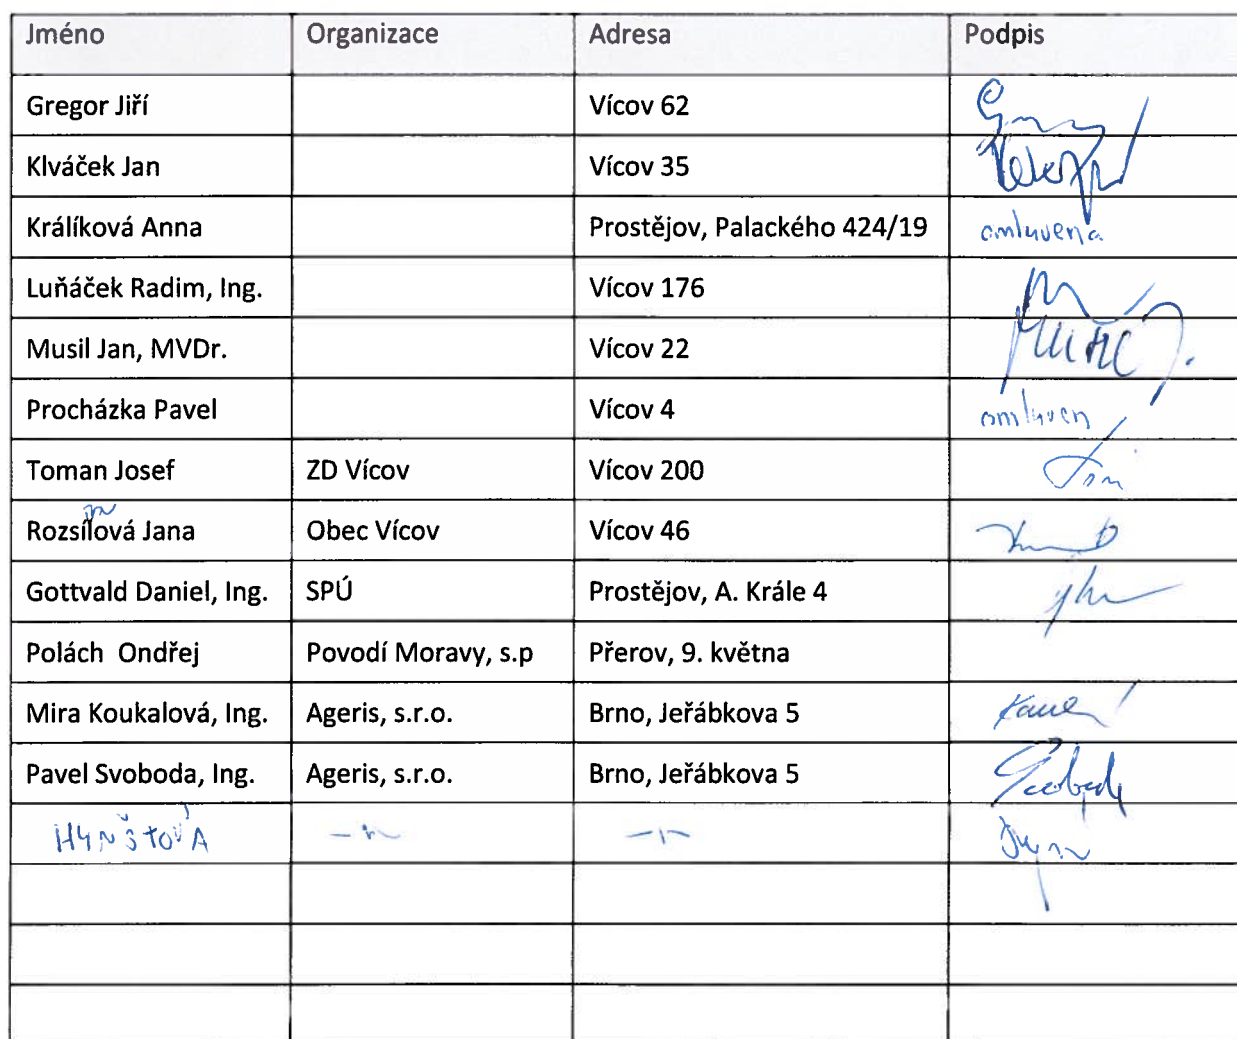 Jméno Organizace Adresa Podpis
Gregor Jiří Vícov 62
Klváček Jan Vícov 35
Králíková Anna Prostějov, Palackého 424/19 omluvena
Luňáček Radim, Ing. Vícov 176
Musil Jan, MVDr. Vícov 22
Procházka Pavel Vícov 4 omluven
Toman Josef ZD Vícov Vícov 200
Rozsílová Jana Obec Vícov Vícov 46
Gottvald Daniel, Ing. SPÚ Prostějov, A. Krále 4
Polách Ondřej Povodí Moravy, s.p Přerov, 9. května
Mira Koukalová, Ing. Ageris, s.r.o. Brno, Jeřábkova 5
Pavel Svoboda, Ing. Ageris, s.r.o. Brno, Jeřábkova 5 Svoboda
HYNŠTOVÁ